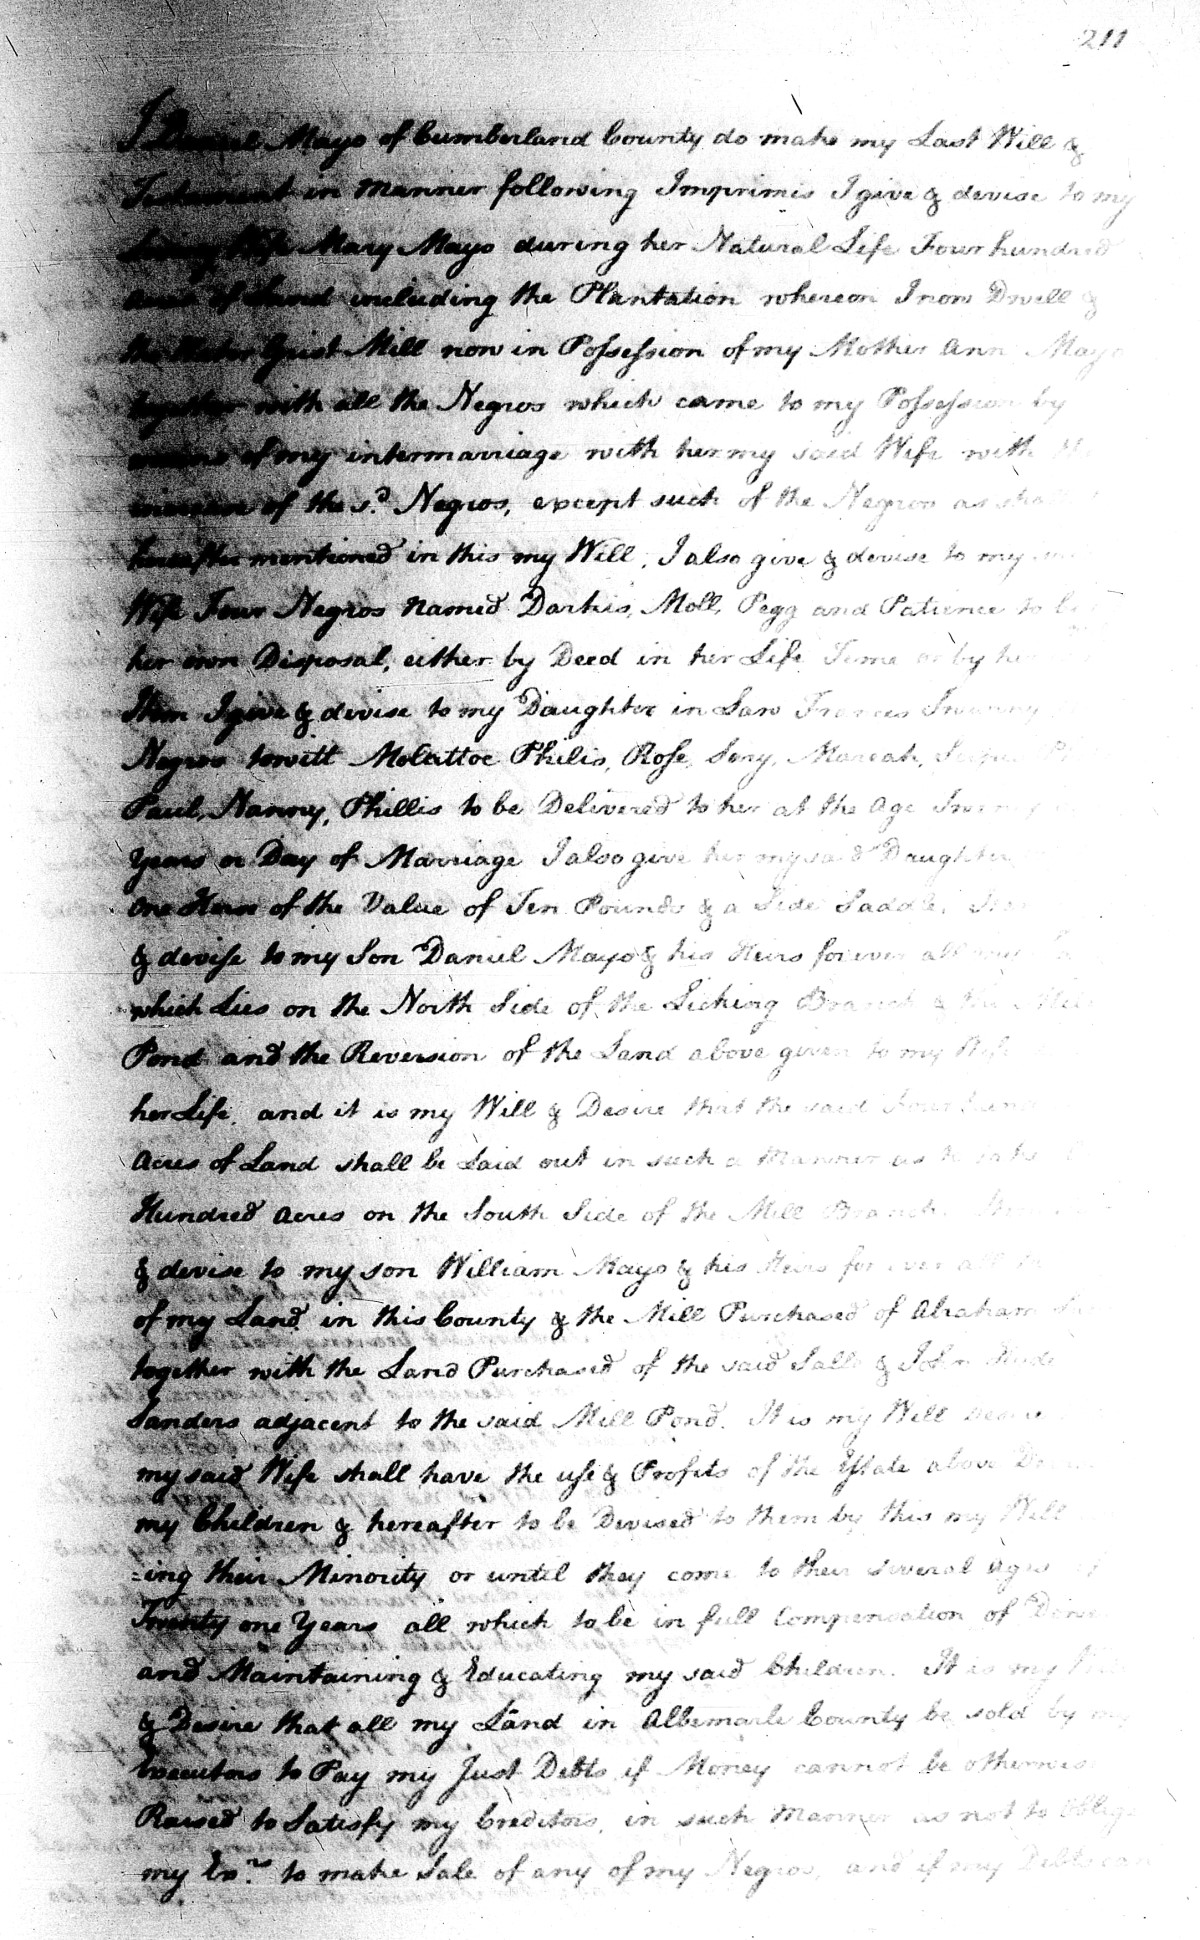 211
I Daniel Mayo of Cumberland County do make my Last Will &
Testament in Manner following Imprimis I give & devise to my
Loving Wife Mary Mayo during her Natural Life Four hundred
acres of Land including the Plantation whereon I now Dwell &
the Water Grist Mill now in Possession of my Mother Ann Mayo
together with all the Negros which came to my Possession by
means of my intermarriage with her my said Wife with
increase of the s.d Negros, except such of the Negros as
hereafter mentioned in this my Will, I also give & devise to my
Wife Four Negros Named Darkis, Moll, Pegg and Patience to be
her own Disposal, either by Deed in her Life Time or by her
Item I give & devise to my Daughter in Law Frances
Negros towitt Molattoe Philis, Rose, Seny,
Paul, Nanny, Phillis to be Delivered to her at the Age
Years or Day of Marriage I also give her my said Daughter
one Horse of the Value of Ten Pounds & a Side Saddle,
& devise to my Son Daniel Mayo & his Heirs forever all my
which Lies on the North Side of the Licking Branch & the Mill
Pond and the Reversion of the Land above given to my Wife
her Life, and it is my Will & Desire that the said Four
Acres of Land shall be Laid out in such a Manner as to take
Hundred Acres on the South Side of the Mill Branch.
& devise to my son William Mayo & his Heirs for ever all
of my Land in this County & the Mill Purchased of Abraham
together with the Land Purchased of the said Salle & John
Sanders adjacent to the said Mill Pond. It is my Will
my said Wife shall have the use & Profits of the Estate above
my Children & hereafter to be Devised to them by this my Will
=ing their Minority or until they come to their several Ages
Twenty one Years all which to be in full Compensation of
and Maintaining & Educating my said Children. It is my
& Desire that all my Land in Albemarle County be sold by my
Executors to Pay my Just Debts if Money cannot be otherwise
Raised to Satisfy my Creditors, in such Manner as not to Oblige
my Ex.rs to make Sale of any of my Negros, and if my Debts can